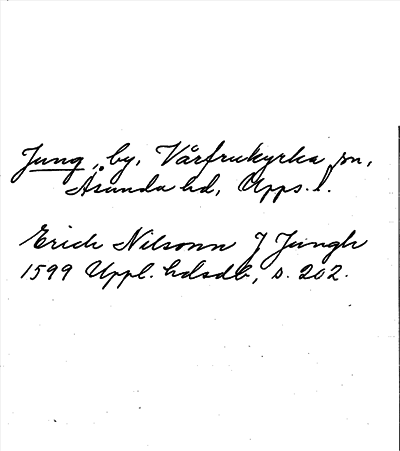 Jung, by, Vårfrukyrka sn,
Åsunda hd, Upps. l.
Erich Nilsonn J Jungh
1599 Uppl. hdsdb, s. 202.